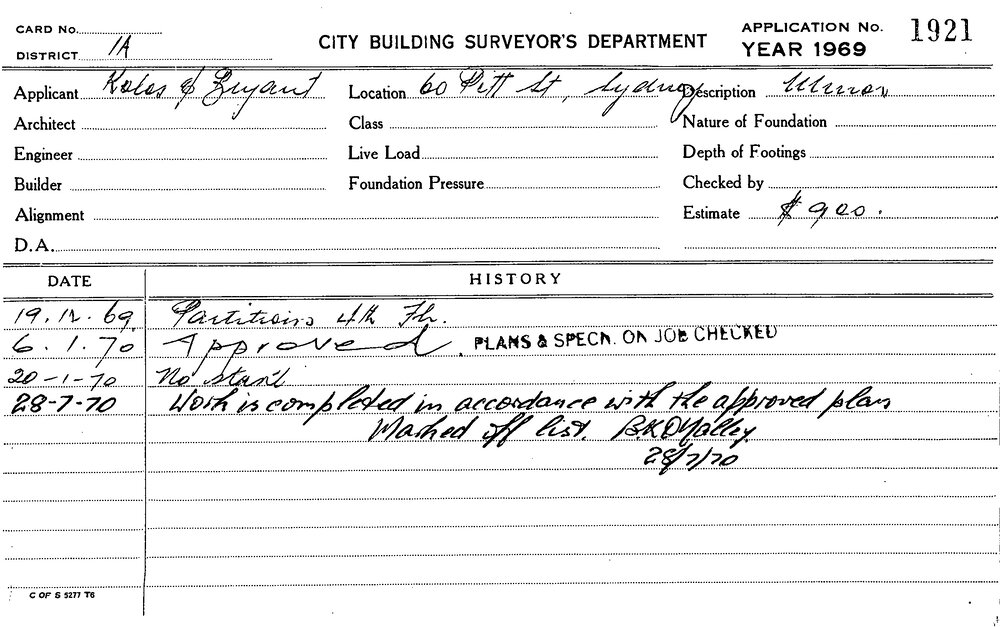 CARD No.
DISTRICT 1A
CITY BUILDING SURVEYOR'S DEPARTMENT
APPLICATION No. 1921
YEAR 1969
Applicant & Bryant
Location 60 Pitt St, Sydney
Description Minor
Architect
Class
Nature of Foundation
Engineer
Live Load
Depth of Footings
Builder
Foundation Pressure
Checked by
Alignment
Estimate $900.
D.A.
DATE
HISTORY
19.12.69 Partitions 4th Flr.
6.1.70 Approved. PLANS & SPECN. ON JOB CHECKED
20-1-70 No start
28-7-70 Work is completed in accordance with the approved plan
Marked off list.
28/7/70
C OF S 5277 T6